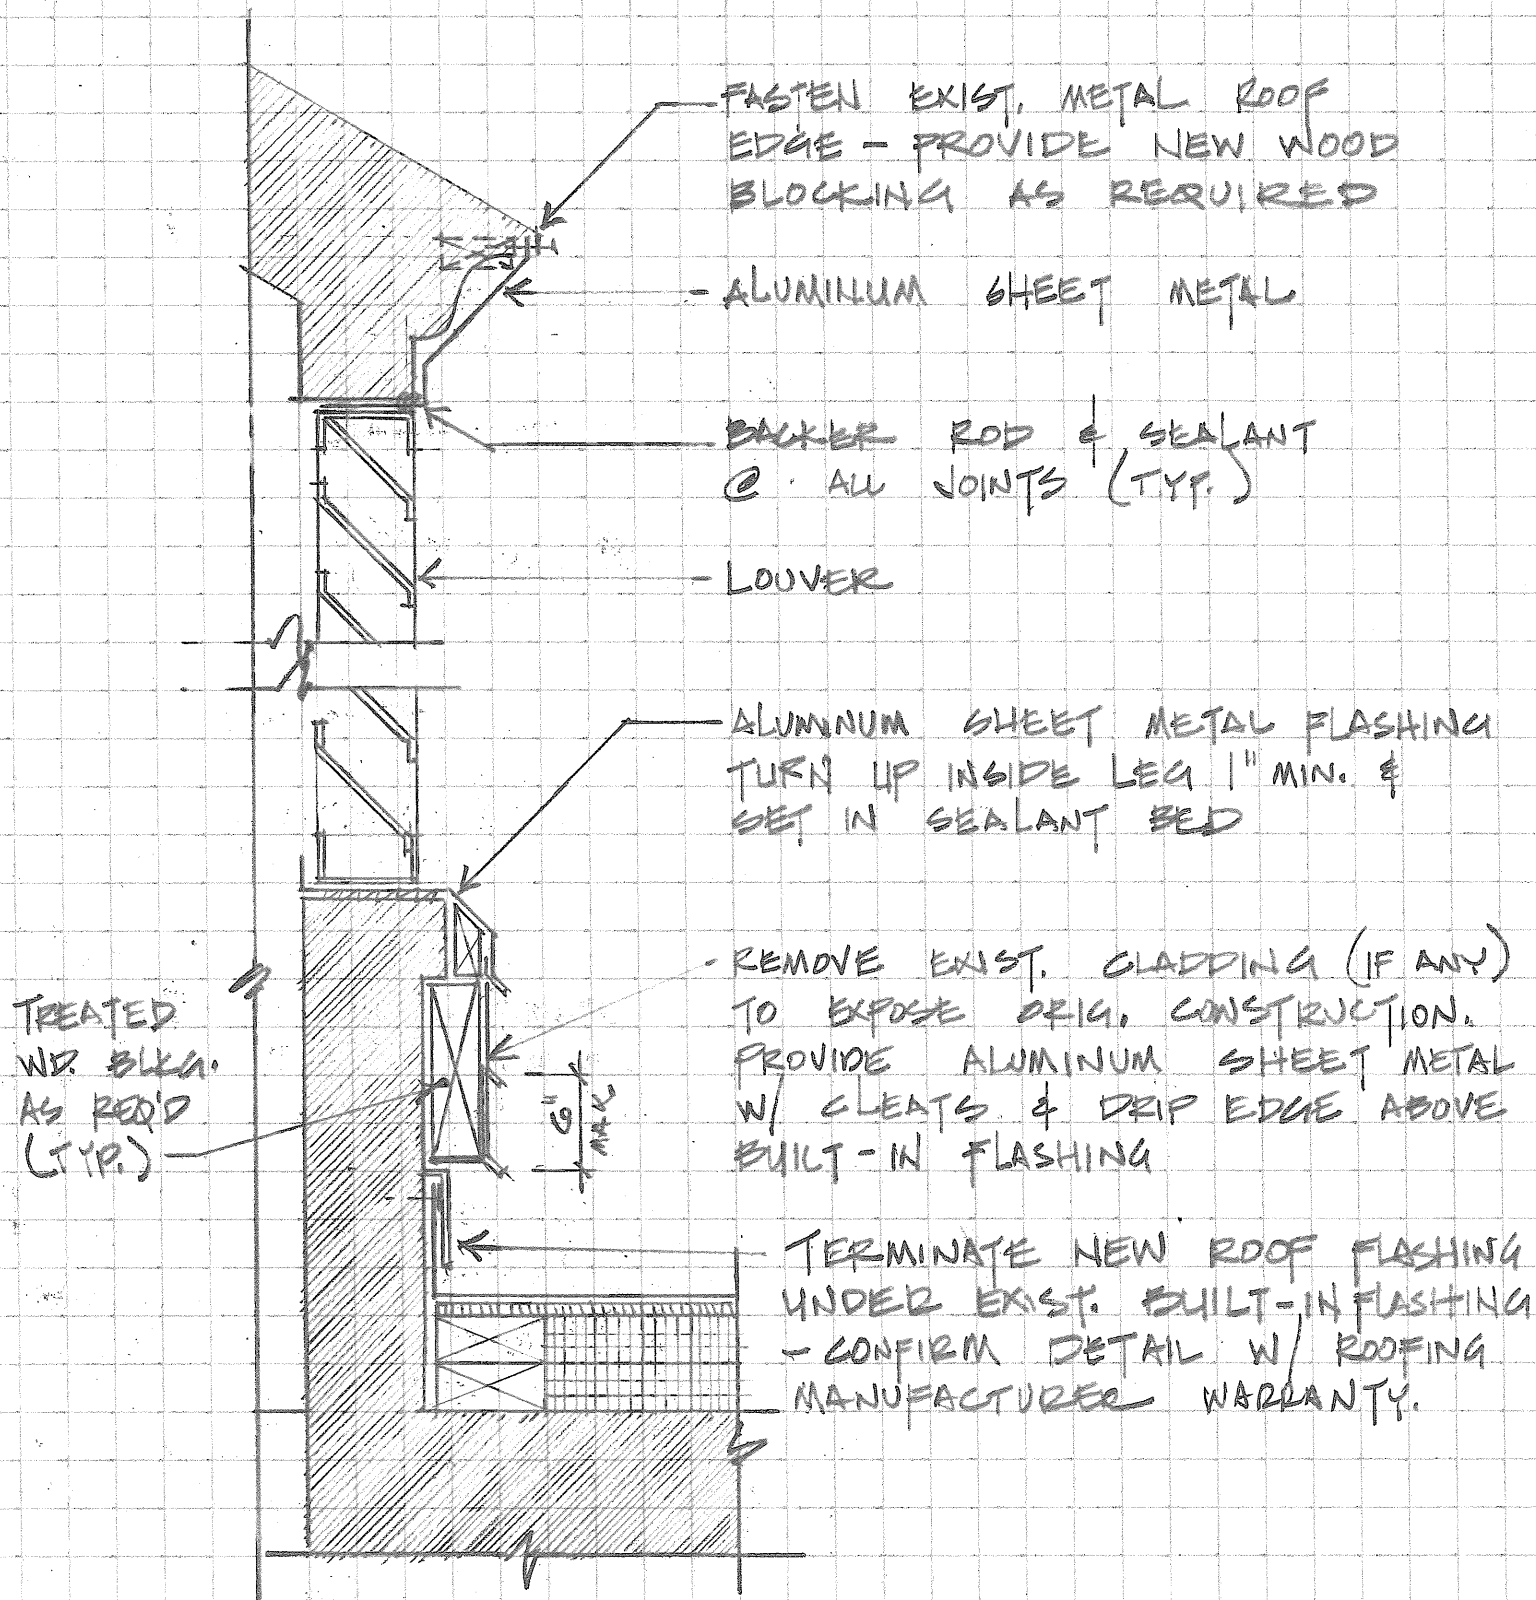 FASTEN EXIST. METAL ROOF
EDGE - PROVIDE NEW WOOD
BLOCKING AS REQUIRED
ALUMINUM SHEET METAL
BACKER ROD & SEALANT
@ ALL JOINTS (TYP.)
LOUVER
ALUMINUM SHEET METAL FLASHING
TURN UP INSIDE LEG 1" MIN. &
SET IN SEALANT BED
REMOVE EXIST. CLADDING (IF ANY)
TO EXPOSE ORIG. CONSTRUCTION.
PROVIDE ALUMINUM SHEET METAL
W/ CLEATS & DRIP EDGE ABOVE
BUILT-IN FLASHING
TREATED
WD. BLKG.
AS REQ'D
(TYP.)
6"
MAX
TERMINATE NEW ROOF FLASHING
UNDER EXIST. BUILT-IN FLASHING
- CONFIRM DETAIL W/ ROOFING
MANUFACTURER WARRANTY.